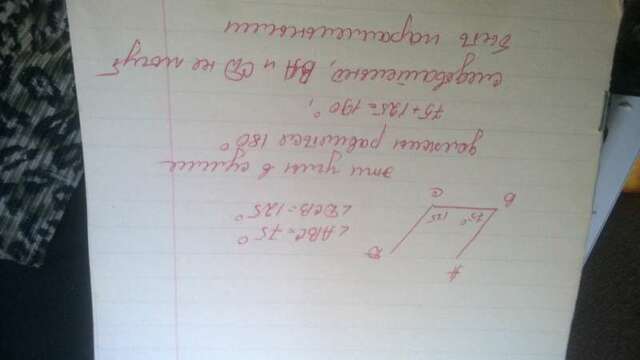 ∠ABC = 75°
∠DCB = 125°
B
75°
125
C
A
D
эти углы в сумме
должны равняться 180°
75 + 125 = 190°,
следовательно, BA и CD не могут
быть параллельными